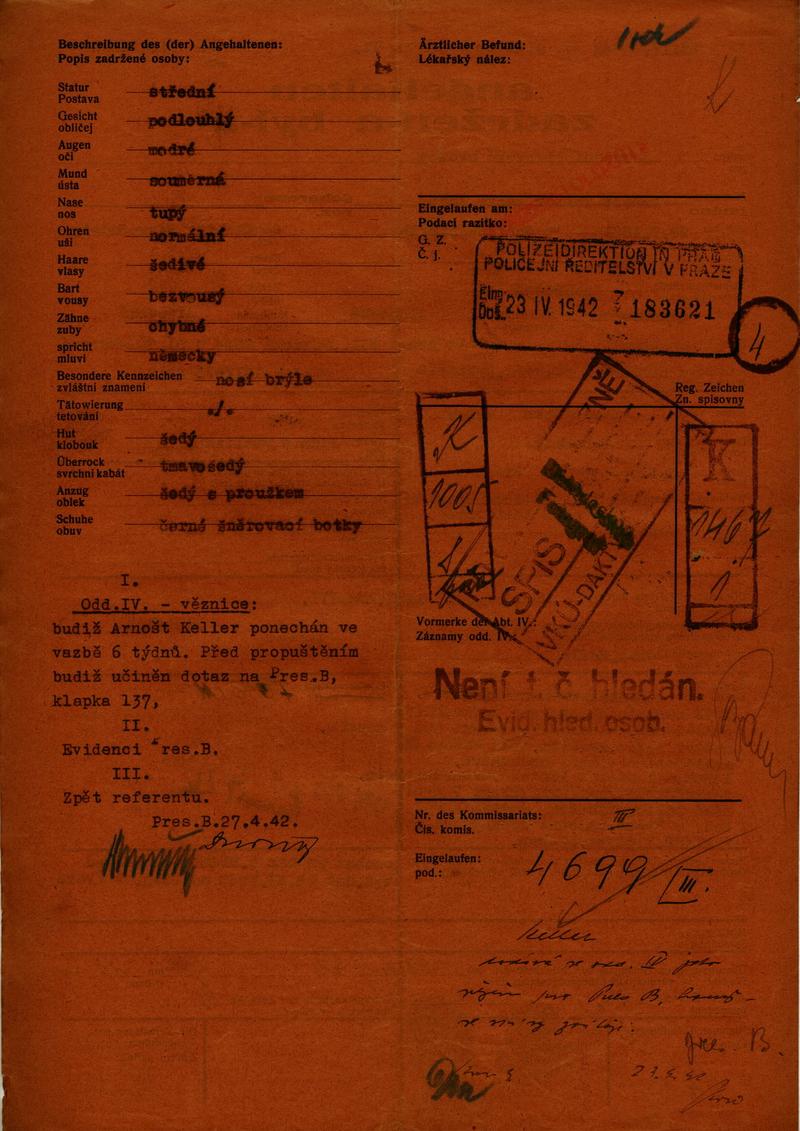 Beschreibung des (der) Angehaltenen:
Popis zadržené osoby:
Statur
Postava střední
Gesicht
obličej podlouhlý
Augen
oči modré
Mund
ústa souměrná
Nase
nos tupý
Ohren
uši normální
Haare
vlasy šedivé
Bart
vousy bezvousý
Zähne
zuby chybné
spricht
mluví německy
Besondere Kennzeichen
zvláštní znamení nosí brýle
Tätowierung
tetování ./.
Hut
klobouk šedý
Überrock
svrchní kabát tmavošedý
Anzug
oblek šedý s proužkem
Schuhe
obuv černé šněrovací botky
I.
Odd.IV. - věznice:
budiž Arnošt Keller ponechán ve
vazbě 6 týdnů. Před propuštěním
budiž učiněn dotaz na Pres.B,
klapka 137,
II.
Evidenci Pres.B.
III.
Zpět referentu.
Pres.B.27.4.42.
Ärztlicher Befund:
Lékařský nález:
Eingelaufen am:
Podací razítko:
G. Z.
Č. j.
POLIZEIDIREKTION IN PRAG
POLICEJNÍ ŘEDITELSTVÍ V PRAZE
Eing.
Doš. 23 IV. 1942 183621
4
Reg. Zeichen
Zn. spisovny
K
1005
K
1467
1
SPIS
VKÚ-DAKT
Vormerke der Abt. IV.:
Záznamy odd. IV.:
Není t. č. hledán.
Evid. hled. osob.
Nr. des Kommissariats: III
Čís. komis.
Eingelaufen:
pod.: 4699/III.
Keller
odd. IV
Pres B,
Pres. B.